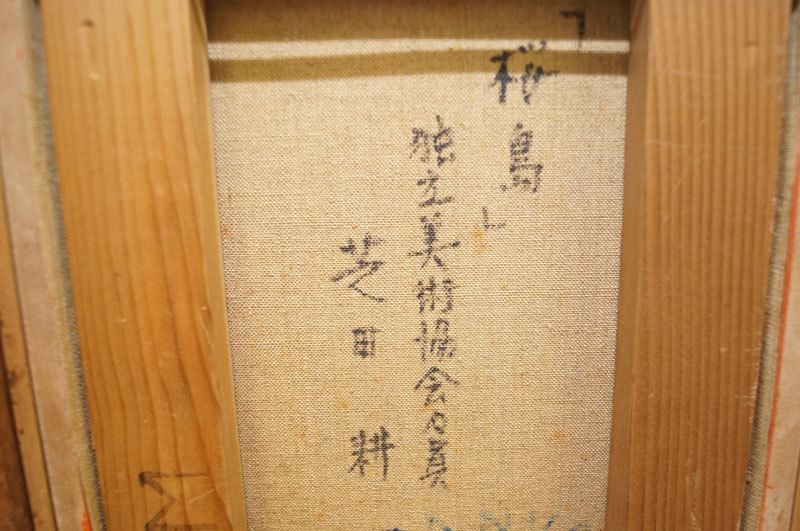 「桜島」
独立美術協会々員
芝田耕